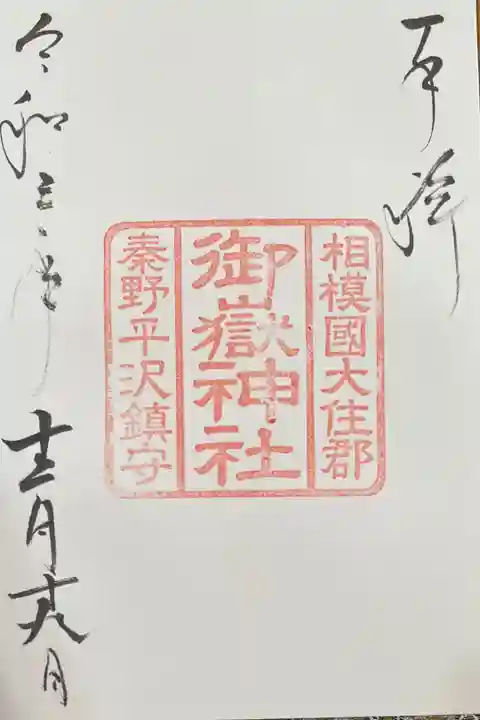 奉拝
相模國大住郡
御嶽神社
秦野平沢鎮安
令和三年十二月十九日